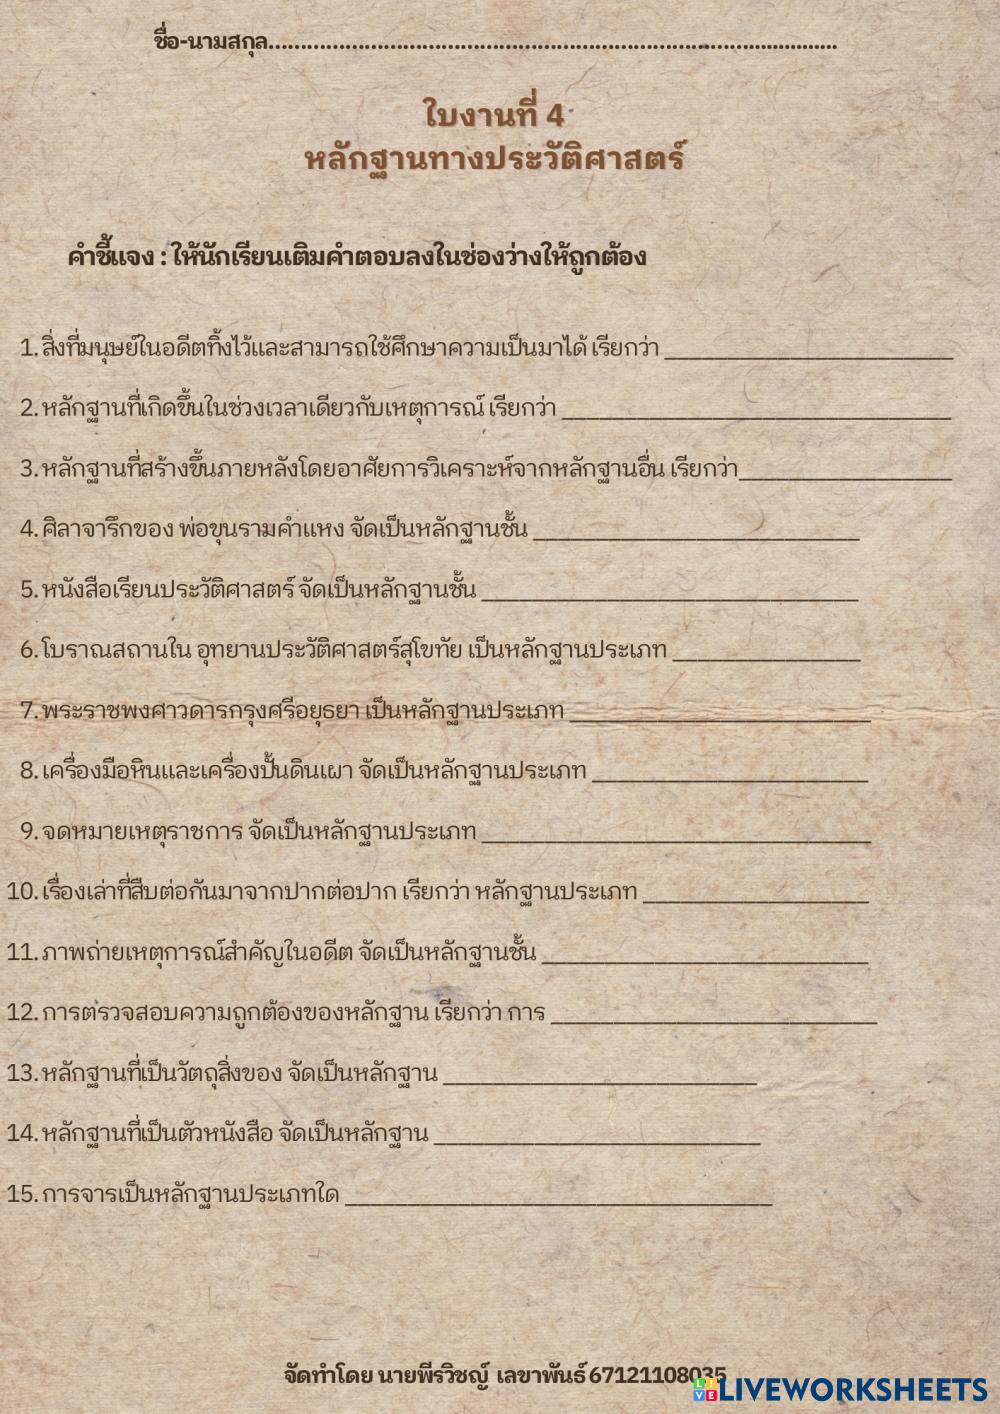 ชื่อ-นามสกุล..........................................................................................
ใบงานที่ 4
หลักฐานทางประวัติศาสตร์
คำชี้แจง : ให้นักเรียนเติมคำตอบลงในช่องว่างให้ถูกต้อง
1. สิ่งที่มนุษย์ในอดีตทิ้งไว้และสามารถใช้ศึกษาความเป็นมาได้ เรียกว่า ______________________
2. หลักฐานที่เกิดขึ้นในช่วงเวลาเดียวกับเหตุการณ์ เรียกว่า ______________________________
3. หลักฐานที่สร้างขึ้นภายหลังโดยอาศัยการวิเคราะห์จากหลักฐานอื่น เรียกว่า________________
4. ศิลาจารึกของ พ่อขุนรามคำแหง จัดเป็นหลักฐานชั้น _________________________
5. หนังสือเรียนประวัติศาสตร์ จัดเป็นหลักฐานชั้น _____________________________
6. โบราณสถานใน อุทยานประวัติศาสตร์สุโขทัย เป็นหลักฐานประเภท ______________
7. พระราชพงศาวดารกรุงศรีอยุธยา เป็นหลักฐานประเภท _______________________
8. เครื่องมือหินและเครื่องปั้นดินเผา จัดเป็นหลักฐานประเภท _____________________
9. จดหมายเหตุราชการ จัดเป็นหลักฐานประเภท ______________________________
10. เรื่องเล่าที่สืบต่อกันมาจากปากต่อปาก เรียกว่า หลักฐานประเภท _________________
11. ภาพถ่ายเหตุการณ์สำคัญในอดีต จัดเป็นหลักฐานชั้น _________________________
12. การตรวจสอบความถูกต้องของหลักฐาน เรียกว่า การ _________________________
13. หลักฐานที่เป็นวัตถุสิ่งของ จัดเป็นหลักฐาน ________________________
14. หลักฐานที่เป็นตัวหนังสือ จัดเป็นหลักฐาน _________________________
15. การจารเป็นหลักฐานประเภทใด _________________________________
จัดทำโดย นายพีรวิชญ์ เลขาพันธ์ 67121108035
LIVE LIVEWORKSHEETS